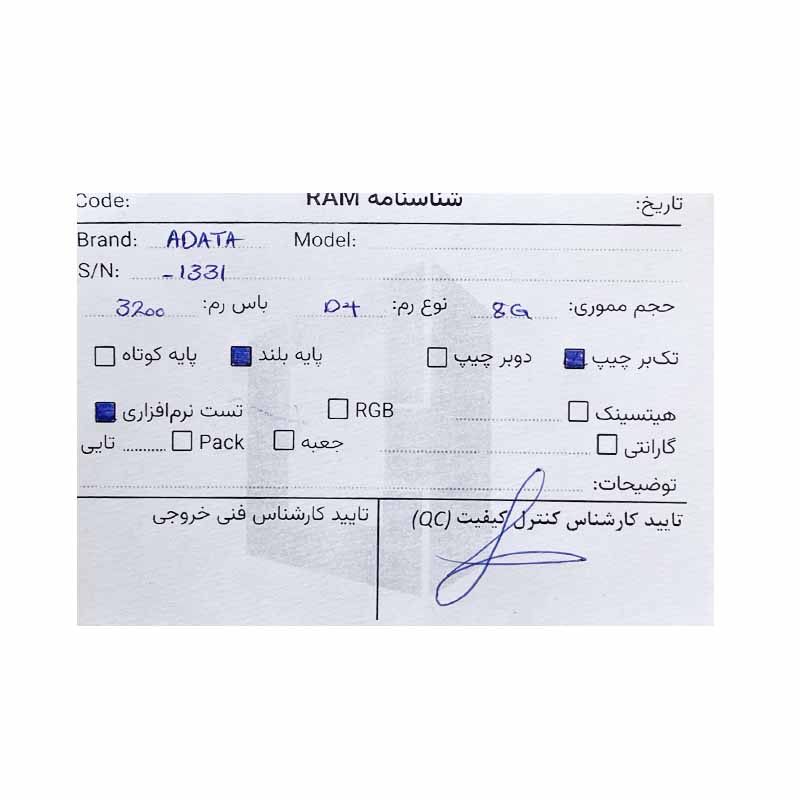 Code: شناسنامه RAM تاریخ:
Brand: ADATA Model:
S/N: -1331
حجم مموری: 8G نوع رم: D4 باس رم: 3200
تک‌بر چیپ دوبر چیپ پایه بلند پایه کوتاه
هیتسینک RGB تست نرم‌افزاری
گارانتی جعبه Pack تایی
توضیحات:
تایید کارشناس کنترل کیفیت (QC) تایید کارشناس فنی خروجی